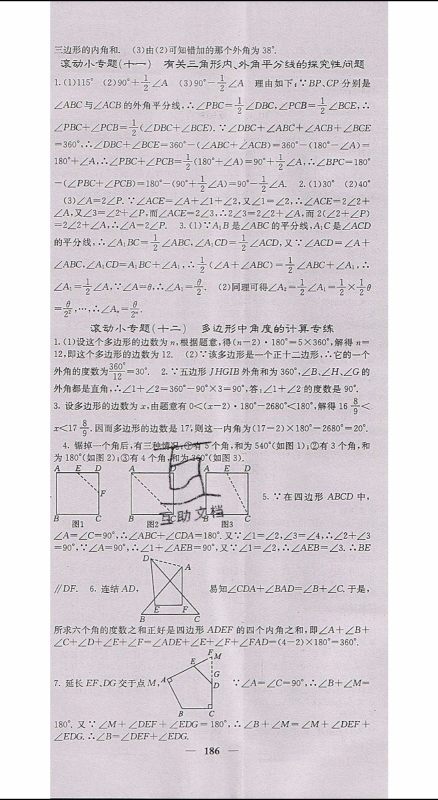 三边形的内角和. (3)由(2)可知错加的那个外角为38°.
滚动小专题(十一) 有关三角形内、外角平分线的探究性问题
1.(1)115° (2)90°+1/2∠A (3)90°-1/2∠A 理由如下:∵BP、CP分别是
∠ABC与∠ACB的外角平分线,∴∠PBC=1/2∠DBC,∠PCB=1/2∠BCE,∴
∠PBC+∠PCB=1/2(∠DBC+∠BCE). ∵∠DBC+∠ABC+∠ACB+∠BCE
=360°,∴∠DBC+∠BCE=360°-(∠ABC+∠ACB)=360°-(180°-∠A)=
180°+∠A,∴∠PBC+∠PCB=1/2(180°+∠A)=90°+1/2∠A,∴∠BPC=180°
-(∠PBC+∠PCB)=180°-(90°+1/2∠A)=90°-1/2∠A. 2.(1)30° (2)40°
(3)∠A=2∠P. ∵∠ACE=∠A+∠1+∠2,又∠1=∠2,∴∠ACE=2∠2+
∠A,又∠3=∠2+∠P,而∠ACE=2∠3,∴2∠3=2∠2+∠A,而2(∠2+∠P)
=2∠2+∠A,∴∠A=2∠P. 3.(1)∵A₁B是∠ABC的平分线,A₁C是∠ACD
的平分线,∴∠A₁BC=1/2∠ABC,∠A₁CD=1/2∠ACD,又∵∠ACD=∠A+
∠ABC,∠A₁CD=A₁BC+∠A₁,∴1/2(∠A+∠ABC)=1/2∠ABC+∠A₁,∴
∠A₁=1/2∠A,∵∠A=θ,∴∠A₁=θ/2. (2)同理可得∠A₂=1/2∠A₁=1/2×1/2θ
=θ/2²,…,∴∠Aₙ=θ/2ⁿ.
滚动小专题(十二) 多边形中角度的计算专练
1.(1)设这个多边形的边数为n,根据题意,得(n-2)·180°=5×360°,解得n=
12,即这个多边形的边数为12. (2)∵该多边形是一个正十二边形,∴它的一个
外角的度数为360°/12=30°. 2.∵五边形JHGIB外角和为360°,∠B、∠H、∠G的
外角都是直角,∴∠1+∠2=360°-90°×3=90°,答:∠1+∠2的度数是90°.
3.设多边形的边数为x,由题意有0<(x-2)·180°-2680°<180°,解得16 8/9<
x<17 8/9. 因而多边形的边数是17,则这一内角为(17-2)×180°-2680°=20°.
4.锯掉一个角后,有三种情况:①有5个角,和为540°(如图1);②有3个角,和
为180°(如图2);③有4个角,和为360°(如图3).
A E D A D A E D
F
B C B C B C
图1 图2 图3
互助文档
5.∵在四边形ABCD中,
∠A=∠C=90°,∴∠ABC+∠CDA=180°. 又∵∠1=∠2,∠3=∠4,∴∠2+∠3
=90°,∵∠A=90°,∴∠1+∠AEB=90°,又∵∠1=∠2,∴∠AEB=∠3. ∴BE
D A
∥DF. 6.连结AD, 易知∠CDA+∠BAD=∠B+∠C. 于是,
E F
B C
所求六个角的度数之和正好是四边形ADEF的四个内角之和,即∠A+∠B+
∠C+∠D+∠E+∠F=∠ADE+∠E+∠F+∠FAD=(4-2)×180°=360°.
F M
E G
A D
7.延长EF、DG交于点M, ∵∠A=∠C=90°,∴∠B+∠M=
B C
180°. 又∵∠M+∠DEF+∠EDG=180°,∴∠B+∠M=∠M+∠DEF+
∠EDG. ∴∠B=∠DEF+∠EDG.
— 186 —